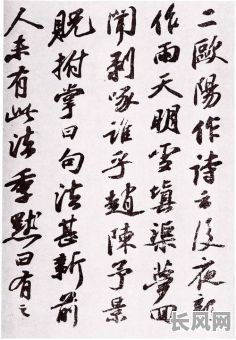 二歐陽作詩云後夜龍
作雨天明雪填渠夢回
聞剥啄誰乎趙陳予景
貺拊掌曰句法甚新前
人未有此法季默曰有之
长风网